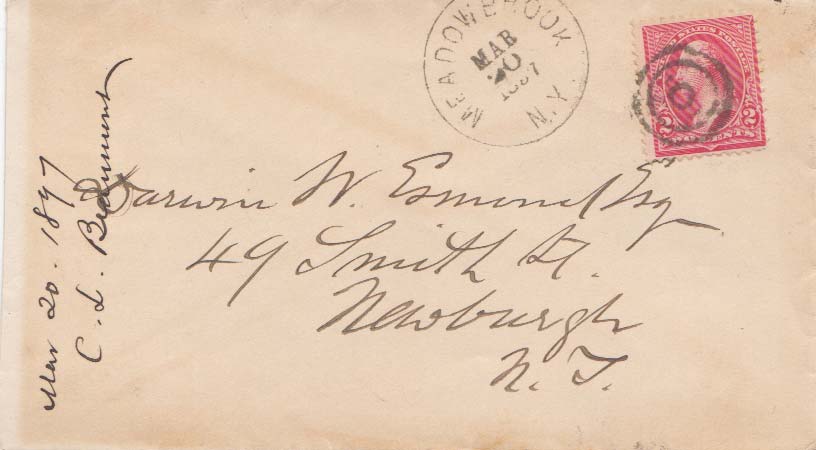 MEADOWBROOK N.Y.
MAR
20
1897
U. STATES POSTAGE
2 TWO CENTS 2
Darwin W. Esmond Esq
49 Smith St.
Newburgh
N. Y.
Mar 20. 1897
C. L. Beaumont